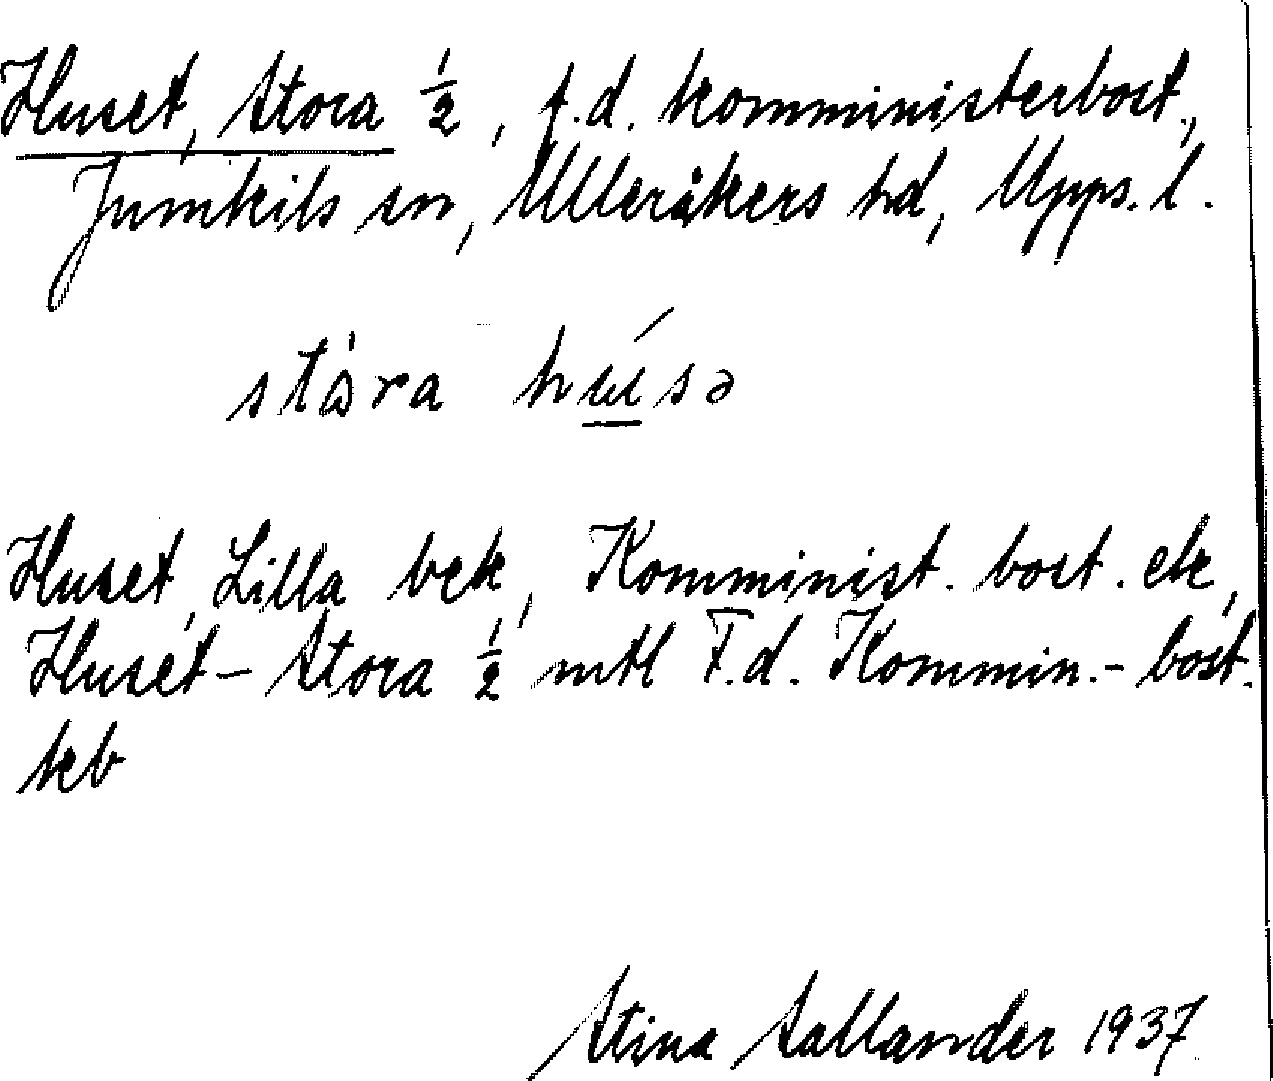 Huset, Stora ½, f.d. komministerbost.,
Jumkils sn, Ulleråkers hd, Upps. l.
stòra húsə
Huset, Lilla bek, Komminist. bost. ek,
Huset-Stora ½ mtl F.d. Kommin.-bost.
kb
Stina Sallander 1937